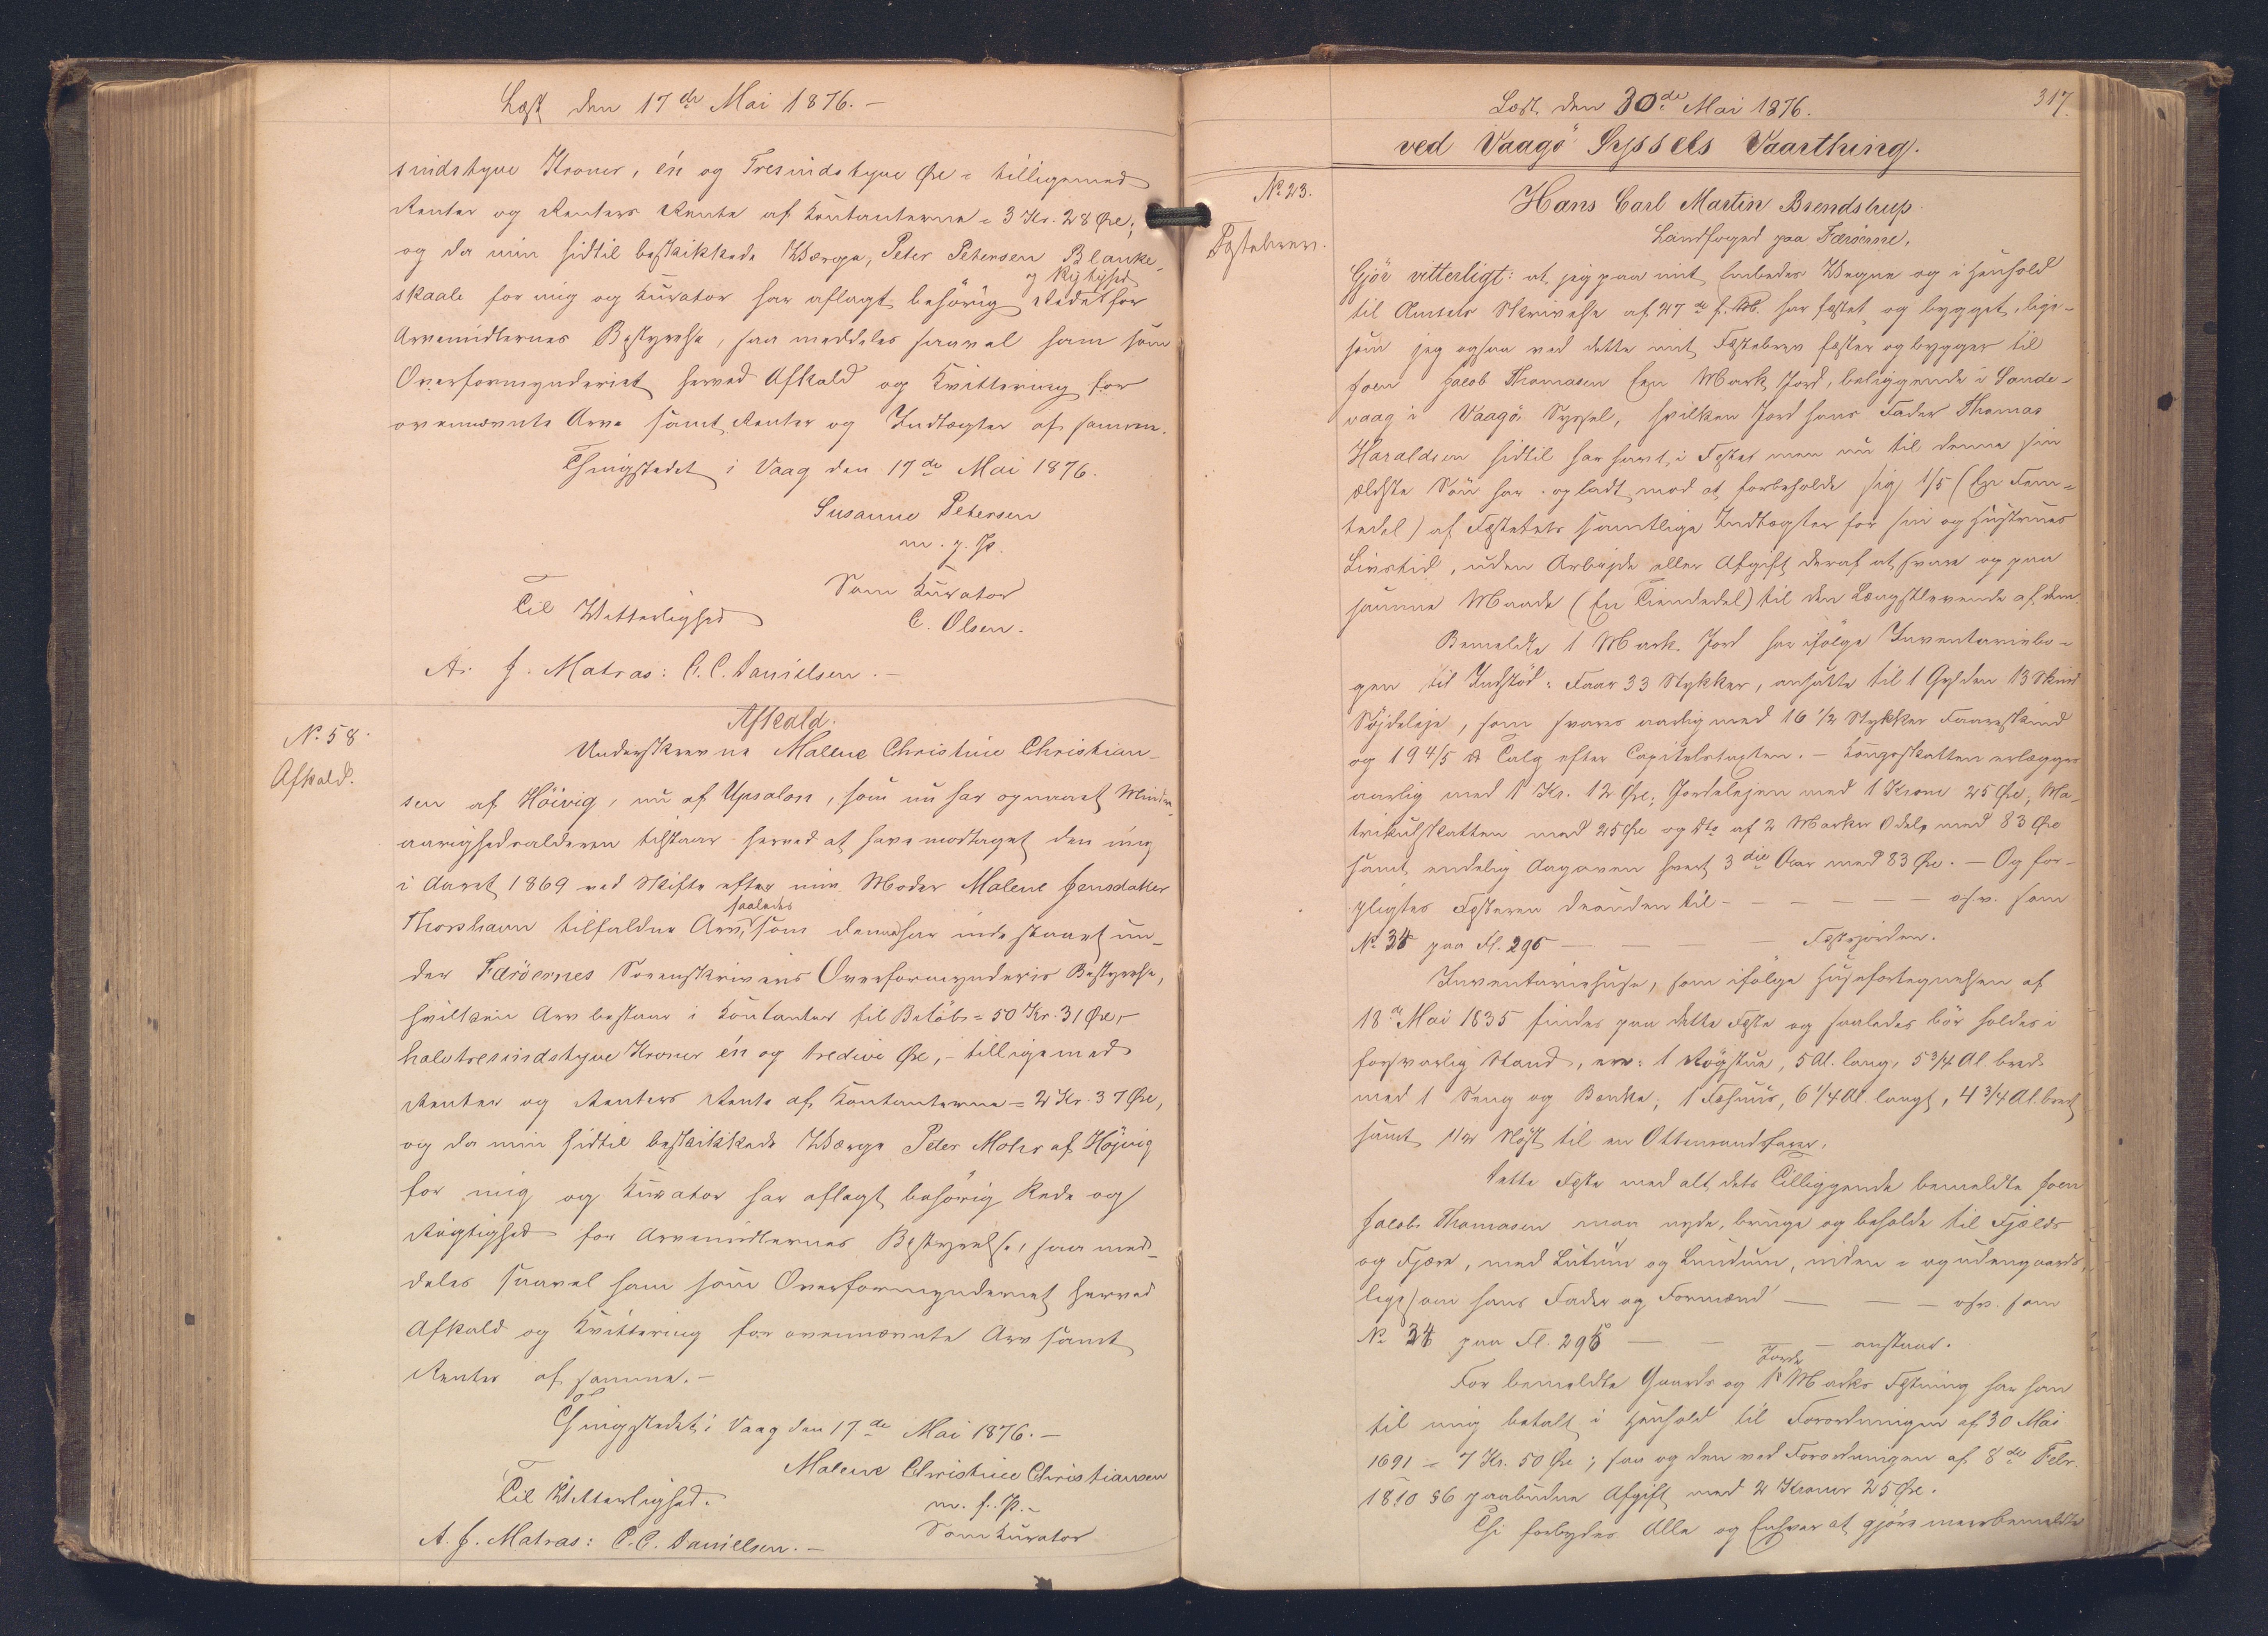 Læst den 17de Mai 1876. -
sindstyve Kroner, én og Tresindstyve Øre - tilligemed
Renter og Renters Rente af Kontanterne = 3 Kr. 28 Øre;
og da min hidtil beskikkede Værge, Peter Petersen Blanke-
og Rigtighed
skaale for mig og Kurator har aflagt behörig Rede for
Arvemidlernes Bestyrelse, saa meddeles saavel ham som
Overformynderiet herved Afkald og Kvittering for
ovennævnte Arv samt Renter og Indtægter af samme.
Thingstedet i Vaag den 17de Mai 1876.
Susanne Petersen
m. f. P.
Som Kurator
Til Vitterlighed
C. Olsen.
A. J. Matras: C. C. Danielsen. -
No. 58.
Afkald.
Afkald.
Underskrevne Malene Christine Christian-
sen af Höivig, nu af Upsalon, som nu har opnaaet Minder-
aarighedsalderen tilstaar herved at have modtaget den mig
i Aaret 1869 ved Skifte efter min Moder Malene Jensdatter
saaledes
Thorshavn tilfaldne Arv, som denne har indestaaet un-
der Færöernes Sorenskrivers Overformynderis Bestyrelse,
hvilken Arv bestaar i Kontanter til Belöb = 50 Kr. 31 Øre, -
halvtresindstyve Kroner én og tredive Øre, - tilligemed
Renter og Renters Rente af Kontanterne = 2 Kr. 37 Øre,
og da min hidtil beskikkede Værge Peter Mohr af Höjvig
for mig og Kurator har aflagt behörig Rede og
Rigtighed for Arvemidlernes Bestyrelse, saa med-
deles saavel ham som Overformynderiet herved
Afkald og Kvittering for ovennævnte Arv samt
Renter af samme. -
Thingstedet i Vaag den 17de Mai 1876. -
Malene Christine Christiansen
Til Vitterlighed.
m. f. P. -
A. J. Matras: C. C. Danielsen. -
Som Kurator
317.
Læst den 30de Mai 1876.
ved Vaagö Syssels Vaarthing.
No. 23.
Fæstebrev.
Hans Carl Martin Brendstrup
Landfoged paa Færöerne,
Gjör vitterligt: at jeg paa mit Embedes Vegne og i Henhold
til Amtets Skrivelse af 27de f. M. har fæstet og bygget, lige-
som jeg ogsaa ved dette mit Fæstebrev fæster og bygger til
Joen Jacob Thomasen Een Mark Jord, beliggende i Sande-
vaag i Vaagö Syssel, hvilken Jord hans Fader Thomas
Haraldsen hidtil har havt i Fæste men nu til denne sin
ældste Sön har opladt mod at forbeholde sig 1/5 (En Fem-
tedel) af Fæstets samtlige Indtægter for sin og Hustrues
Livstid, uden Arbejde eller Afgift deraf at svare og paa
samme Maade (En Tiendedel) til den Længstlevende af dem.
Bemeldte 1 Mark Jord har ifölge Inventariebo-
gen til Indstöd: Faar 33 Stykker, ansatte til 1 Gylden 13 Skind
Söjdeleje, som svares aarlig med 16 1/2 Stykker Faareskind
og 19 4/5 ℔ Talg efter Capitelstaxten. - Kongeskatten erlægges
aarlig med 1 Kr. 12 Øre, Jordelejen med 1 Krone 25 Øre, Ma-
trikulskatten med 25 Øre og dto af 2 Marker Odels med 83 Øre
samt endelig Aagaven hvert 3die Aar med 83 Øre. - Og for-
pligtes Fæsteren desuden til - - - - - - osv. som
No 34 paa Fl. 295 - - - - Fæstejorden.
Inventariehuse, som ifölge Husefortegnelsen af
18de Mai 1835 findes paa dette Fæste og saaledes bör holdes i
forsvarlig Stand, ere: 1 Rögstue, 5 Al. lang, 5 3/4 Al. bred
med 1 Seng og Bænke, 1 Fæhuus, 6 1/4 Al. langt, 4 3/4 Al. bredt
samt 1/2 Nöst til en Ottemandsfarer.
Dette Fæste med alt dets Tilliggende bemeldte Joen
Jacob Thomasen maa nyde, bruge og beholde til Fjelds
og Fjære, med Lutum og Lundum, inden- og udengaards,
ligesom hans Fader og Formænd - - - osv. som
No 34 paa Fl. 295 - - - anstaar.
Jords
For bemeldte Gaards og 1 Marks Fæstning har han
til mig betalt i Henhold til Forordningen af 30 Mai
1691 = 7 Kr. 50 Øre; saa og den ved Forordningen af 8de Febr.
1810 §6 paabudne Afgift med 2 Kroner 25 Øre.
Thi forbydes Alle og Enhver at gjöre mersbemeldte